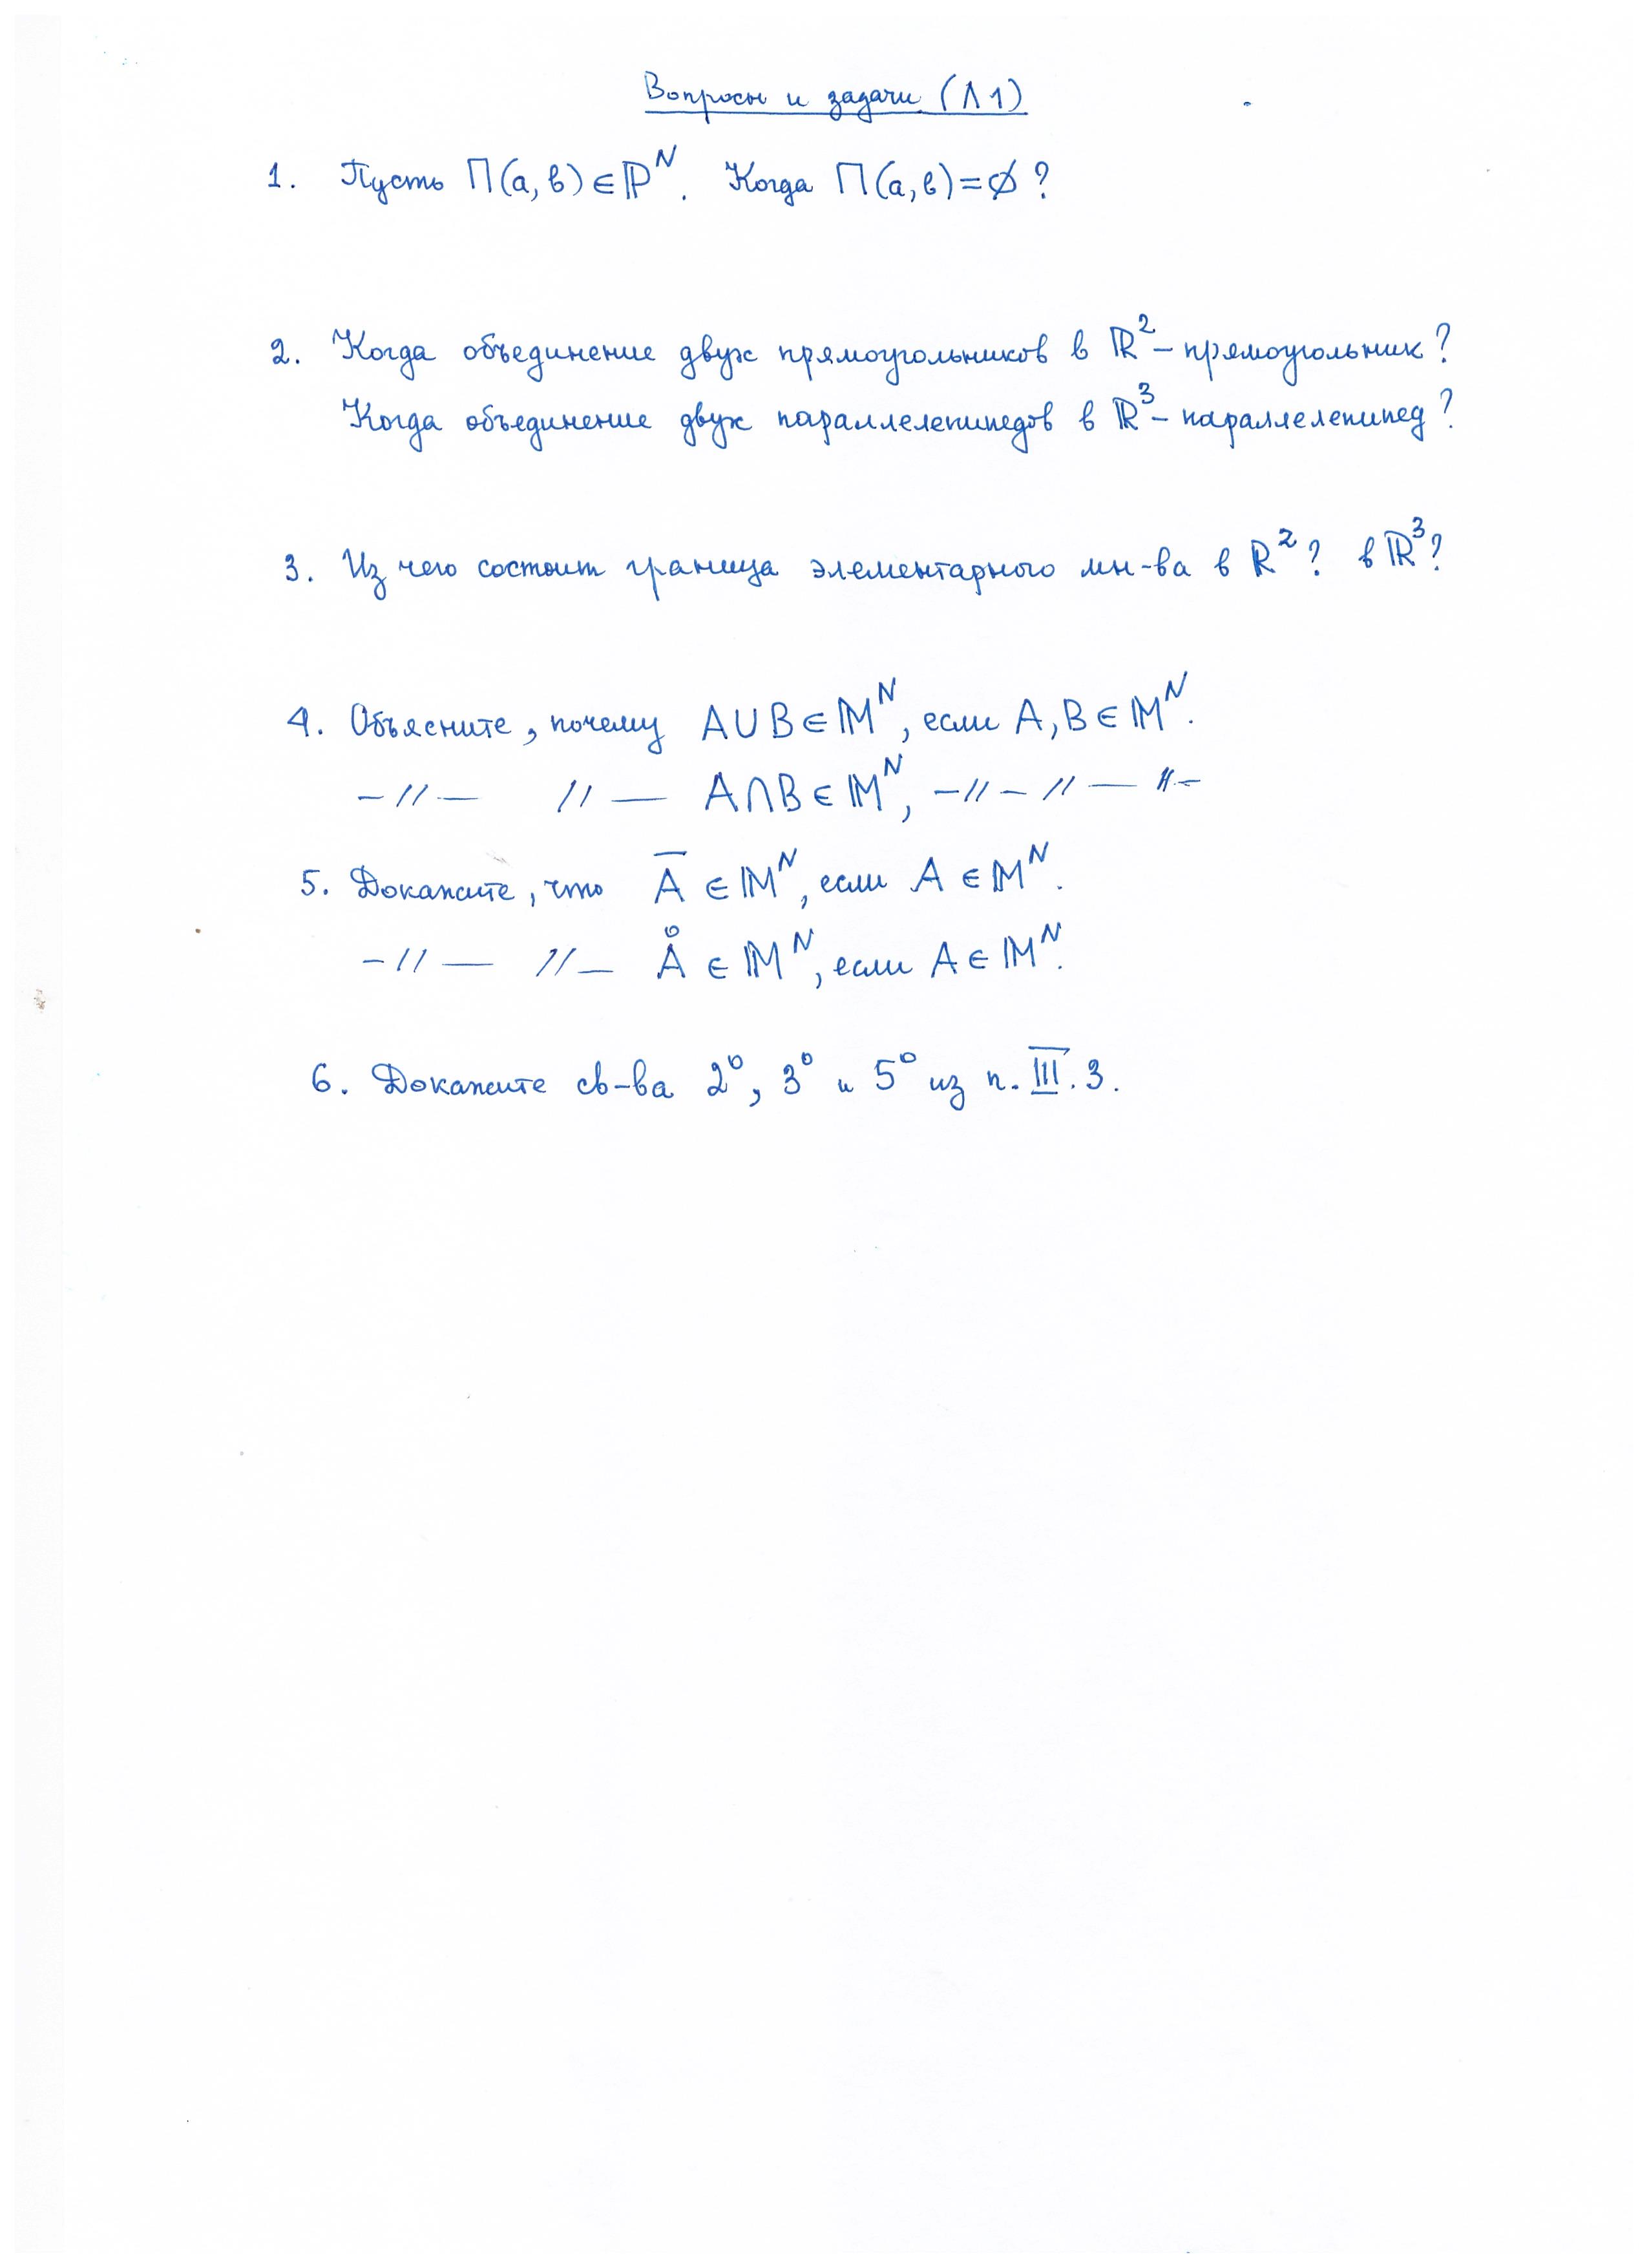 Вопросы и задачи (Л1)
1. Пусть П(a, b) ∈ ℙᴺ. Когда П(a, b) = ∅ ?
2. Когда объединение двух прямоугольников в ℝ² – прямоугольник?
Когда объединение двух параллелепипедов в ℝ³ – параллелепипед?
3. Из чего состоит граница элементарного мн-ва в ℝ² ? в ℝ³ ?
4. Объясните, почему A ∪ B ∈ 𝕄ᴺ, если A, B ∈ 𝕄ᴺ.
–//– //– A ∩ B ∈ 𝕄ᴺ, –//–//– //–
5. Докажите, что A̅ ∈ 𝕄ᴺ, если A ∈ 𝕄ᴺ.
–//– //– Å ∈ 𝕄ᴺ, если A ∈ 𝕄ᴺ.
6. Докажите св-ва 2⁰, 3⁰ и 5⁰ из п. III.3.